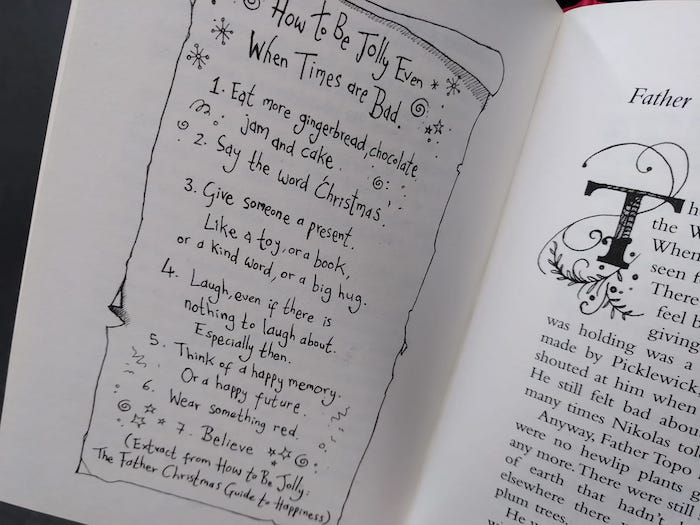 How to Be Jolly Even
When Times are Bad.
1. Eat more gingerbread, chocolate
jam and cake.
2. Say the word Christmas.
3. Give someone a present.
Like a toy, or a book,
or a kind word, or a big hug.
4. Laugh, even if there is
nothing to laugh about.
Especially then.
5. Think of a happy memory.
Or a happy future.
6. Wear something red.
7. Believe
(Extract from How to Be Jolly:
The Father Christmas Guide to Happiness)
Father
Th
the W
When
seen
There
feel b
giving
was holding was a
made by Picklewick,
shouted at him when
He still felt bad abou
many times Nikolas told
Anyway, Father Topo
were no hewlip plants g
any more. There were still
of earth that hadn't
elsewhere there
plum trees.
He w